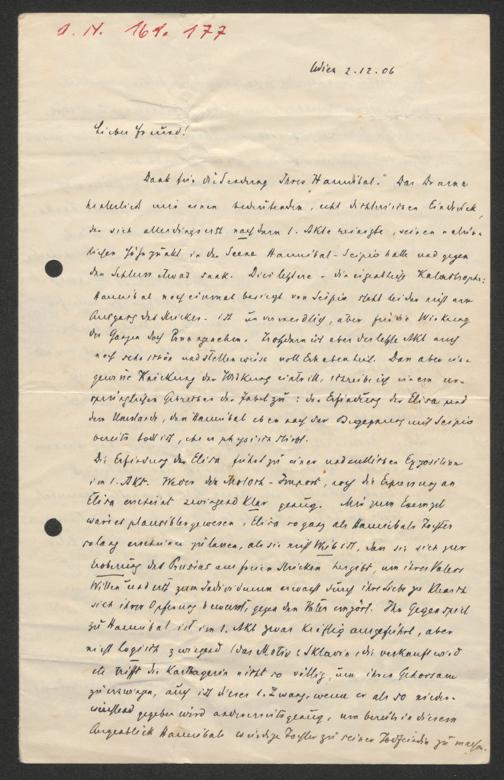 I. N. 164.177
Wien 2.12.06
Lieber Freund!
Dank für die Sendung Ihres "Hannibal." Das Drama
hinterließ mir einen bedeutenden, echt dichterischen Eindruck,
der sich allerdings erst nach dem 1. Akte einstellte, seinen natür-
lichen Höhepunkt in der Scene Hannibal-Scipio hatte und gegen
den Schluss etwas sank. Die letztere - die eigentliche Katastrophe:
Hannibal noch einmal besiegt von Scipio steht bei der
Ausgang des Stückes - ist unvermeidlich, aber für die Wirkung
des Ganzen doch Trotzdem ist aber der letzte Akt auch
noch sehr schön und stellenweise voll Erhabenheit. Dass aber eine
gewisse Knickung der Wirkung eintritt, schreibe ich einem ur-
sprünglichen Gebrechen der Fabel zu: der Erfindung der Elisa und
dem Umstande, dass Hannibal eben nach der Begegnung mit Scipio
bereits todt ist, ehe er physisch stirbt.
Die Erfindung der Elisa führt zu einer undeutlichen Exposition
im 1. Akt. Weder der Moloch-Import, noch die Expressung an
Elisa erscheint zwingend klar genug. Mir zum Exempel
wäre es plausibler gewesen, Elisa so ganz als Hannibals Tochter
solang erscheinen zu lassen, als sie nicht Weib ist, dass sie sich zur
Eroberung des Prusias aus freien Stücken hergibt, um ihres Vaters
Willen und erst zum Individuum erwacht durch ihre Liebe zu
sich ihrer Opferung bewusst gegen den Vater empört. Ihr Gegenspiel
zu Hannibal ist im 1. Akt zwar kräftig ausgeführt, aber
nicht logisch zwingend (das Motiv: Sklavin, die verkauft wird
etc trifft die Karthagerin nicht so völlig, um ihren Gehorsam
zu erzwingen, auch ist dieser 1. Zwang, wenn er als so nieder-
gegeben wird andererseits genug, um bereits in diesem
Augenblick Hannibals Tochter zu seiner Todfeindin zu machen.